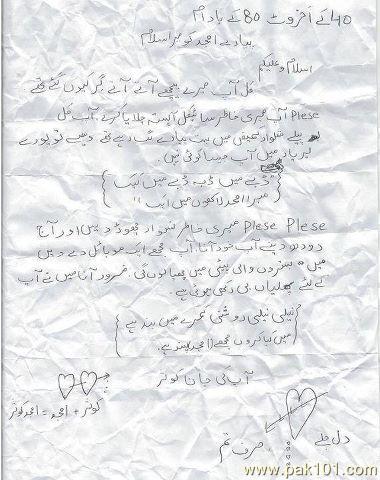 40 کے اخروٹ 80 کے بادام
پیارے امجد کو میرا سلام
اسلام و علیکم
کل آپ میرے پیچھے آتے آتے گر کیوں گئے تھے
Plese آپ میری خاطر سائیکل آہستہ چلایا کرے۔ آپ کل
پیلے شلوار قمیض میں بہت پیارے لگ رہے تھے ویسے تو پورے
میں آپ جیسا کوئی نہیں۔
ڈبے میں ڈبہ ڈبے میں کیک
میرا امجد لاکھوں میں ایک "
Plese Plese میری خاطر نسوار چھوڑ دیں اور آج
دودھ دینے آپ خود آنا۔ آپ مجھے ایک موبائل دے دیں
میں بستروں والی پیٹی میں چھپا لوں گی۔ ضرور آنا میں نے آپ
کے لئے پھلیاں بھی رکھی ہوئی ہے
نیلی نیلی روشنی کمرے میں بند ہے
میں کیا کروں مجھے امجد پسند ہے۔
آپ کی جانا کوثر
کوثر + امجد = امجد کوثر
دل جلے
صرف تم
www.pak101.com